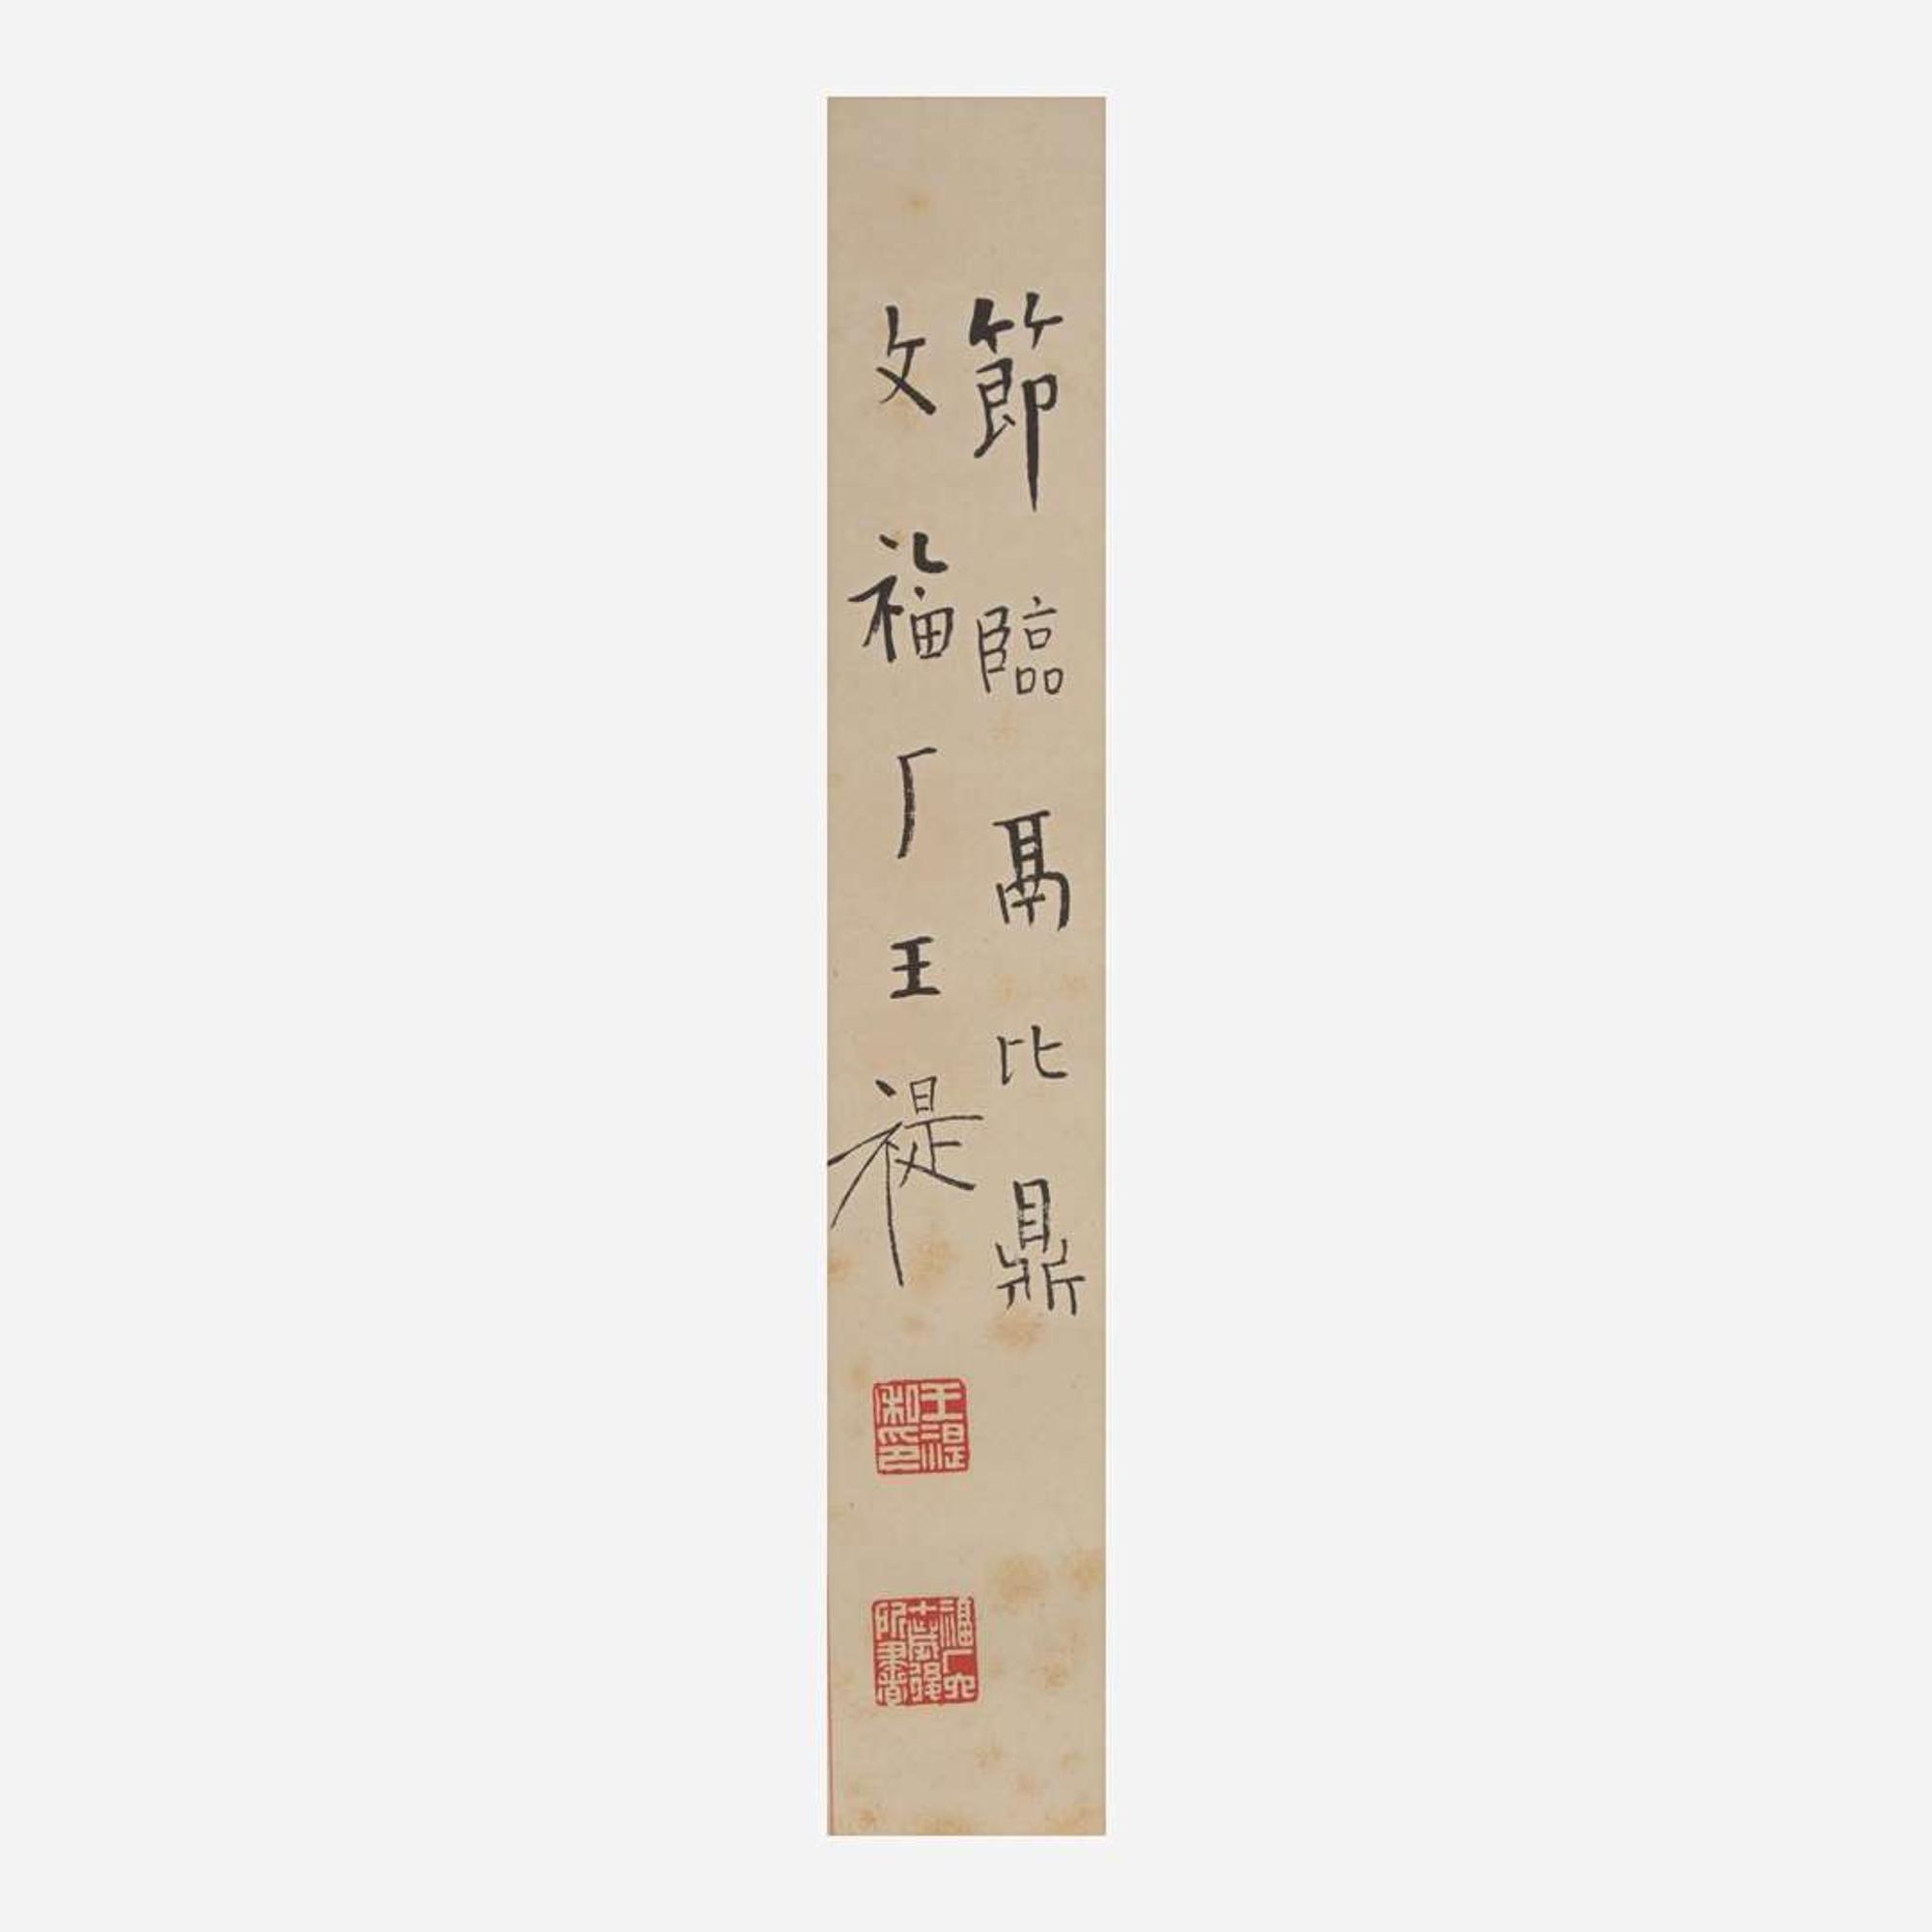 節臨鬲比鼎
文福厂王禔
王禔私印
福厂六十歲後所書